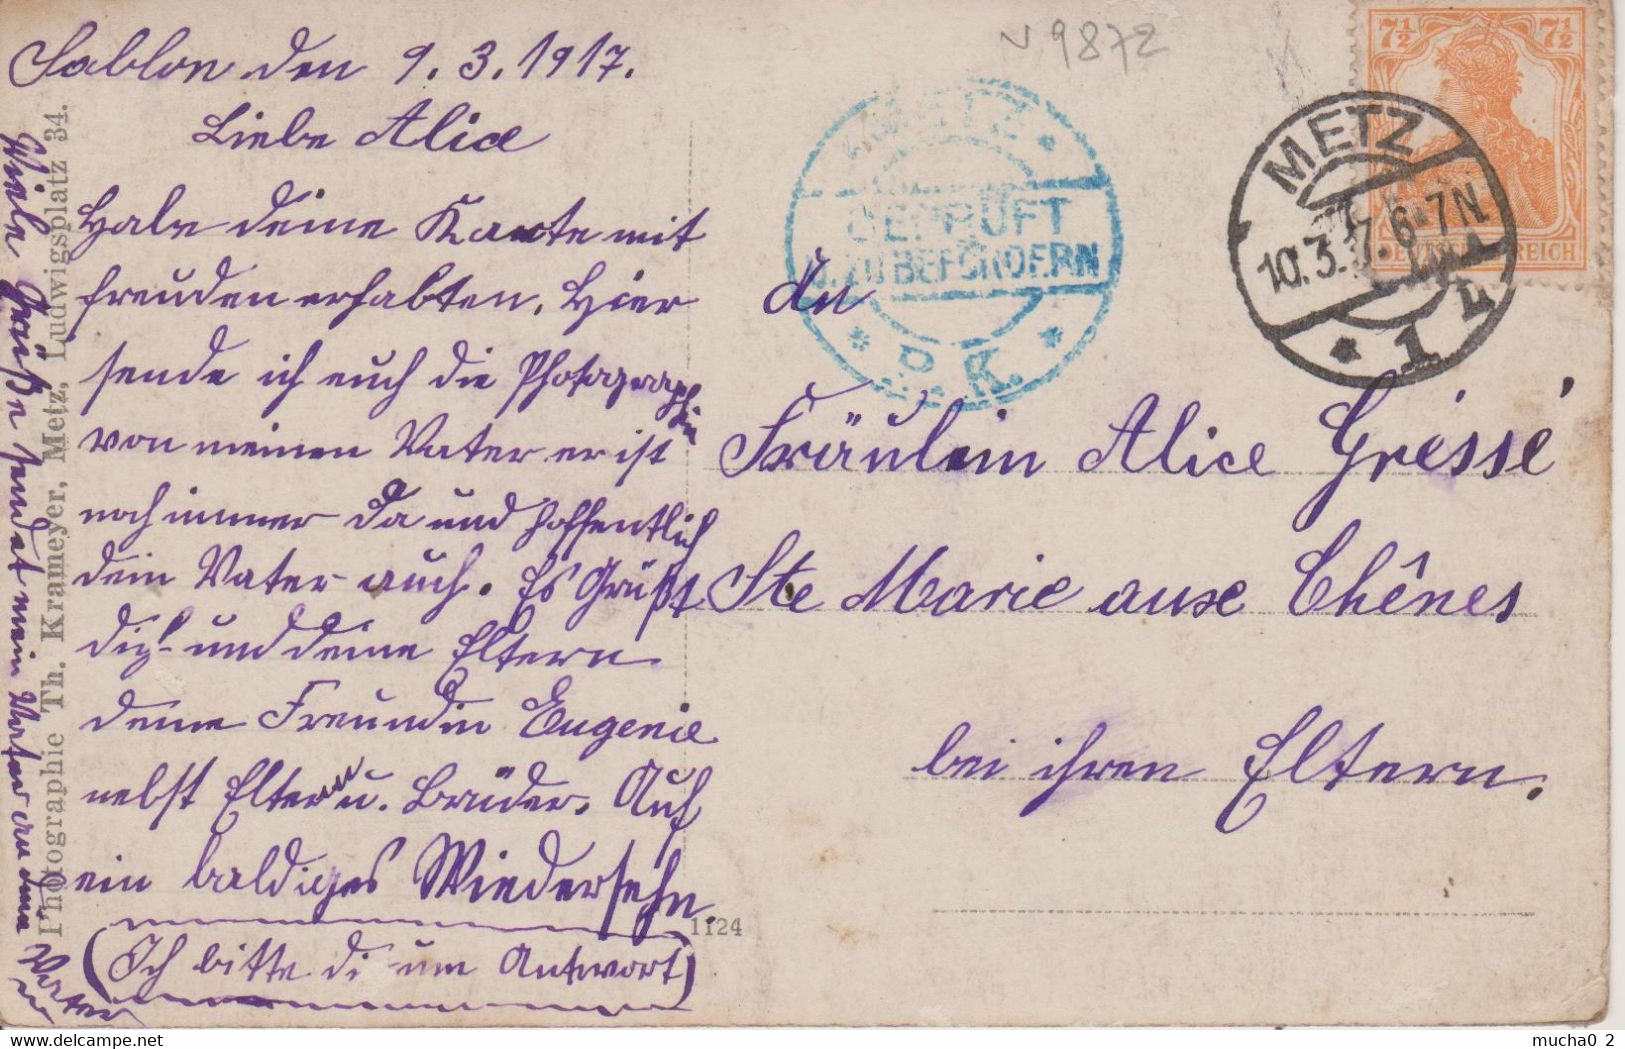 Sablon den 9. 3. 1917.
Liebe Alice
Habe deine Karte mit
freuden erhalten. Hier
sende ich euch die Photographie
von meinen Vater er ist
noch immer da und hoffentlich
dein Vater auch. Es Grüßt
dich und deine Eltern
deine Freundin Eugenie
nebst Eltern u. Brüder. Auf
ein baldiges Wiedersehn.
(Ich bitte di um Antwort)
Viele Grüße sendet mein Vater an deine Vater
Photographie Th. Krameyer, Metz, Ludwigsplatz 34.
1124
v 9872
METZ
GEPRÜFT
U. ZU BEFÖRDERN
P. K.
7½ 7½
DEUTSCHES REICH
METZ
10.3.17. 6-7N
* 1 h
An
Fräulein Alice Gréssé
Ste Marie aux Chênes
bei ihren Eltern.
mucha0_2